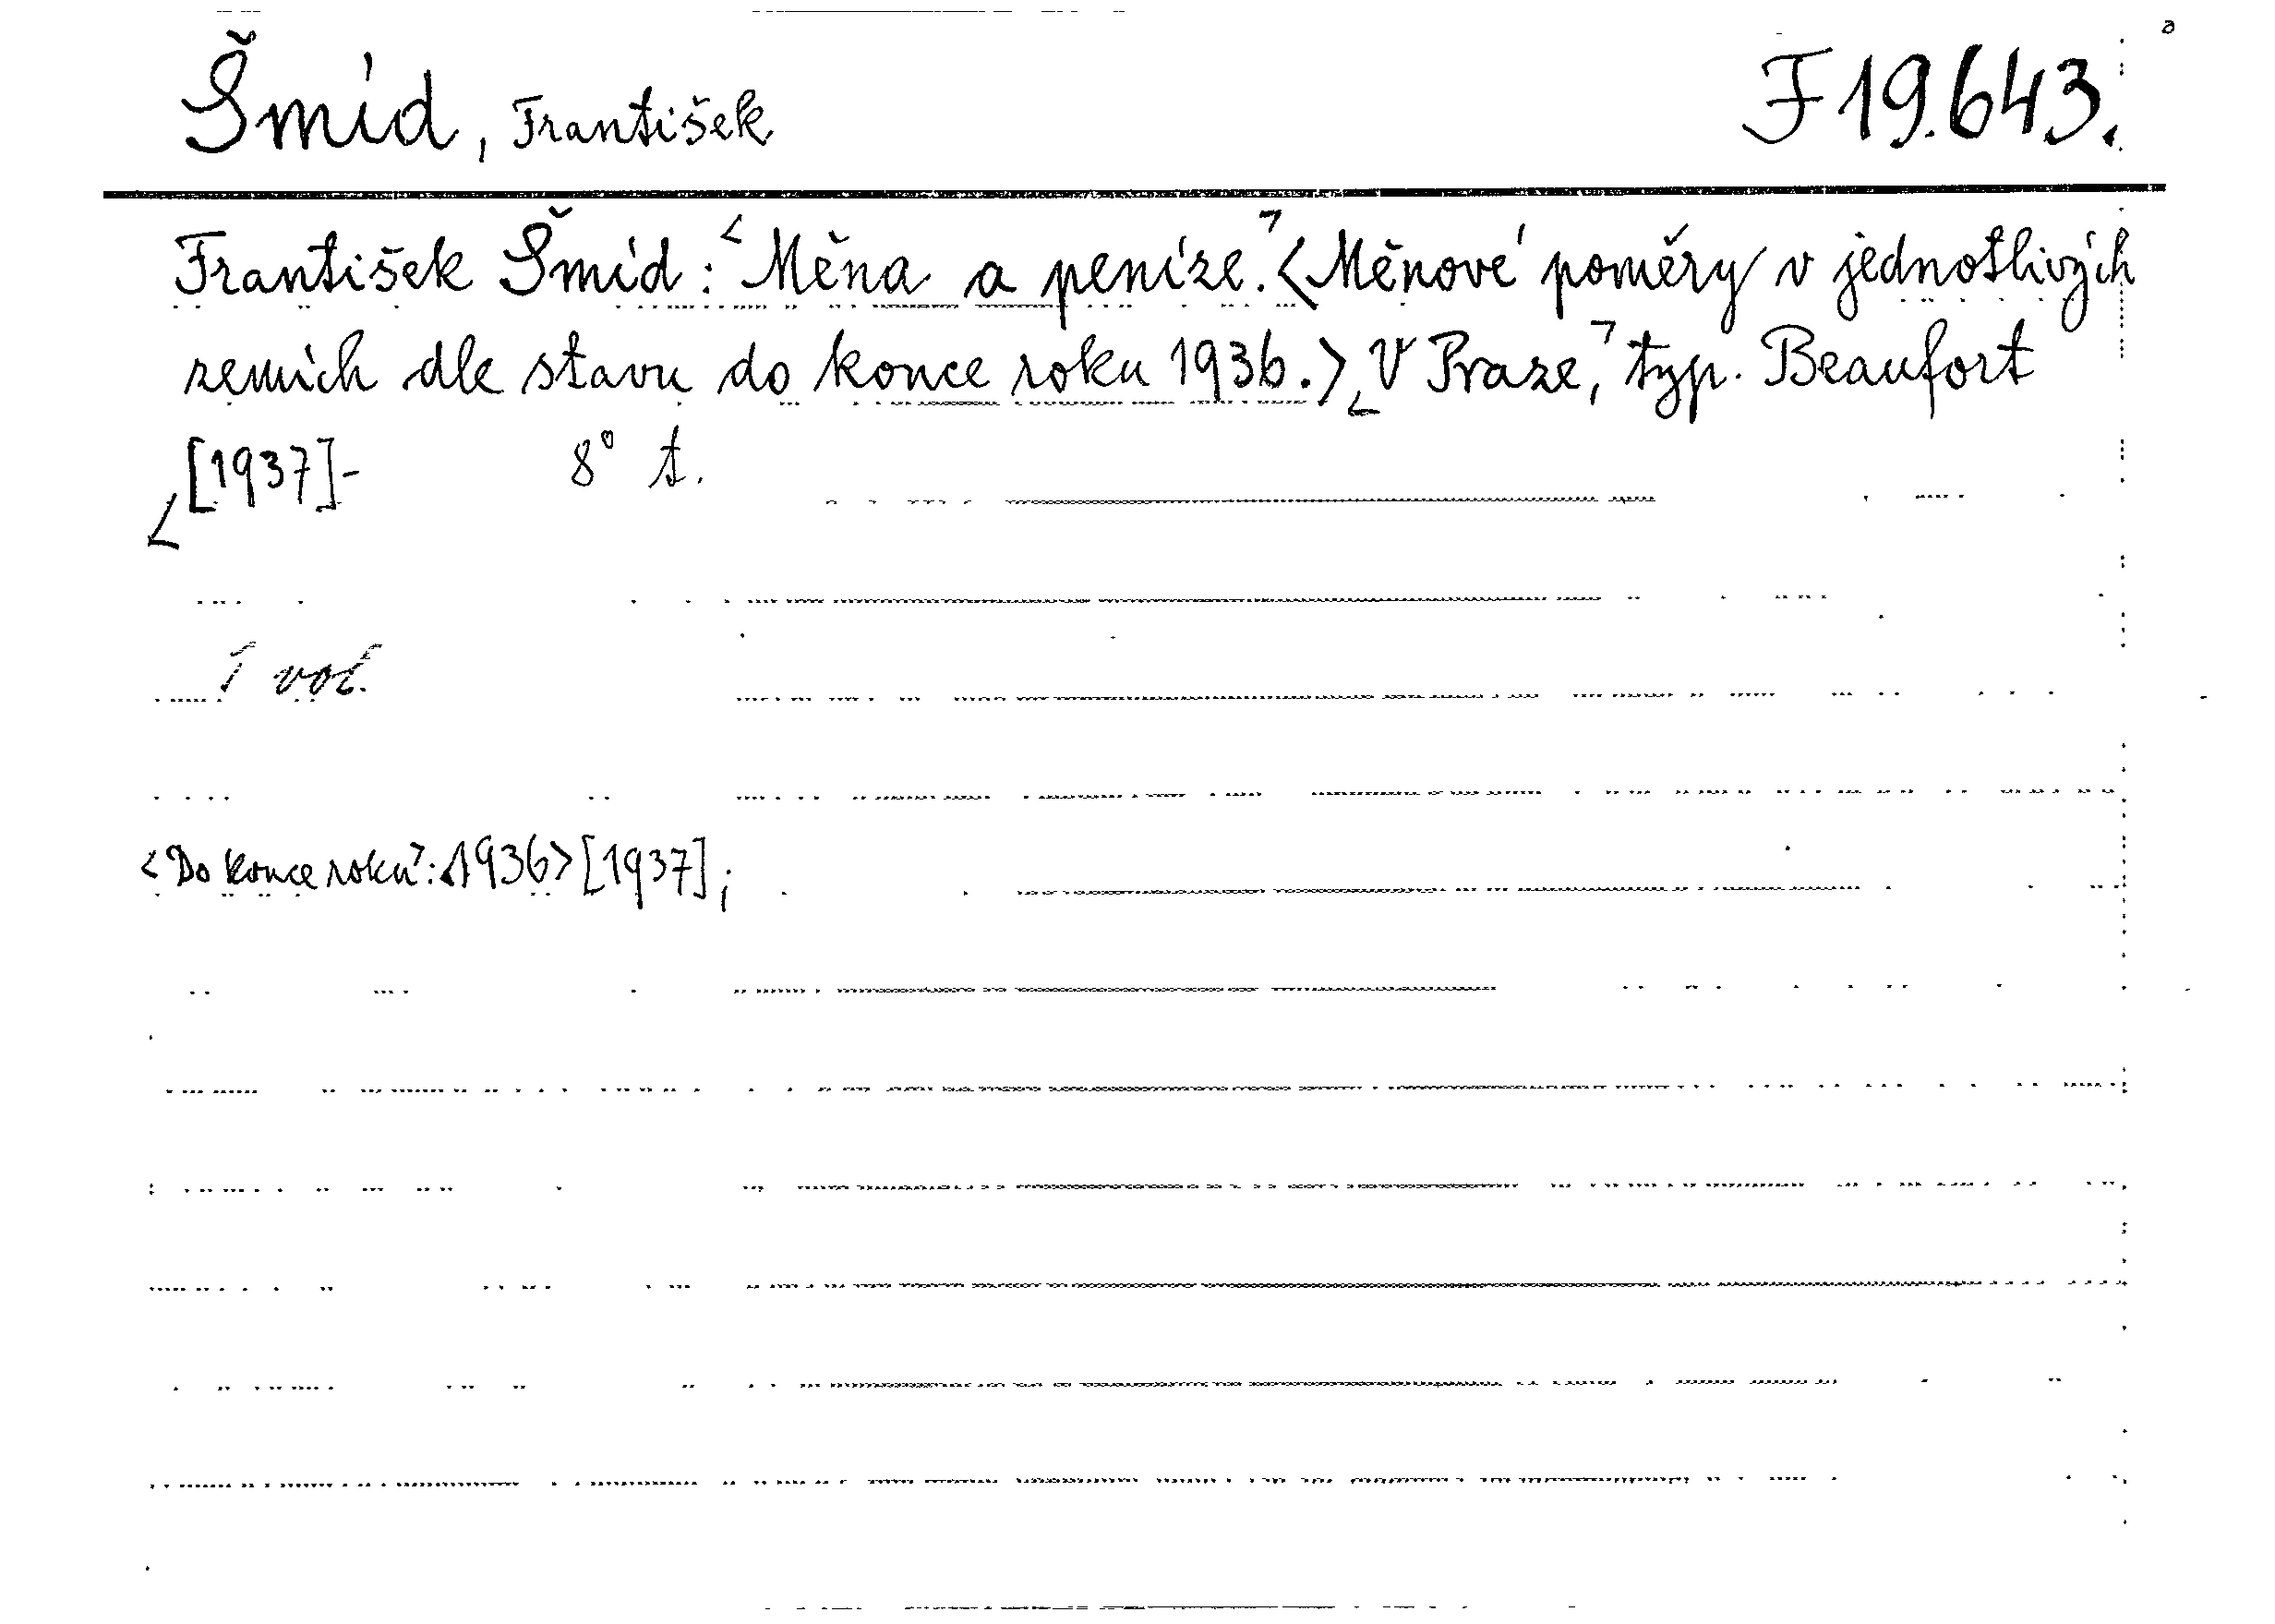 Šmíd, František F 19.643.
František Šmíd: <Měna a peníze.> <Měnové poměry v jednotlivých
zemích dle stavu do konce roku 1936.> V Praze, typ. Beaufort
[1937]- 8° t.
1 vol.
<Do konce roku>: <1936> [1937];